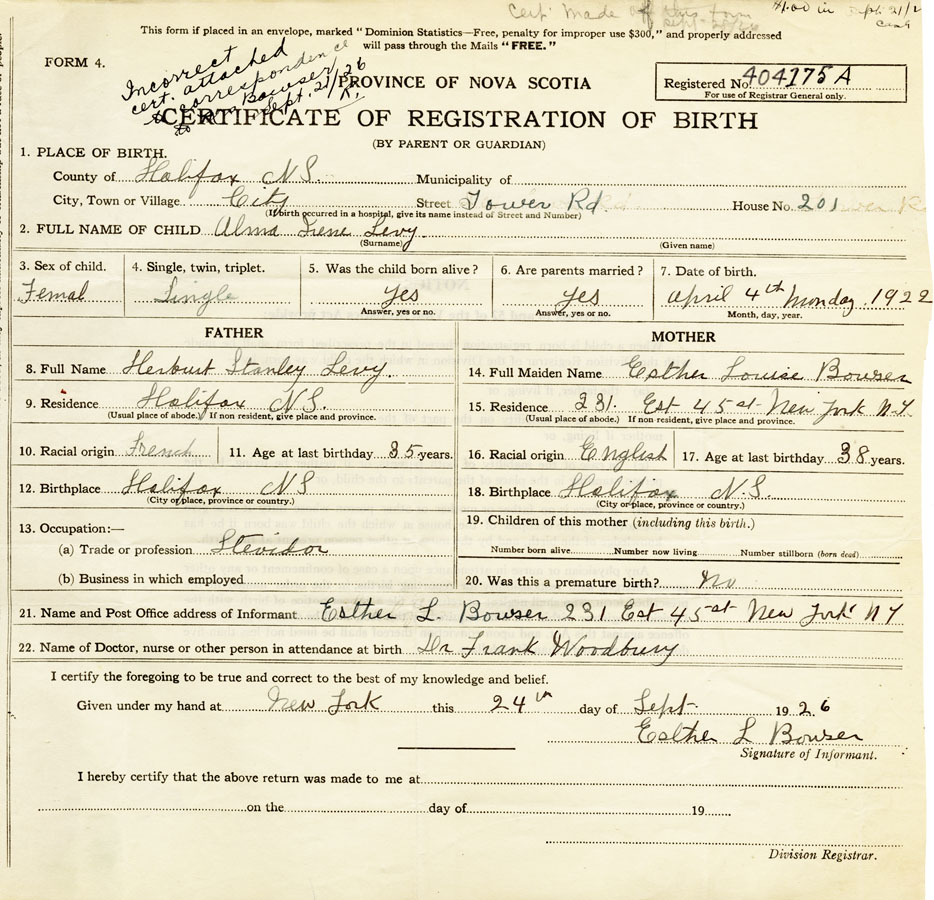 Cert. Made off this form
$1.00 in Sept. 21/2
This form if placed in an envelope, marked "Dominion Statistics—Free, penalty for improper use $300," and properly addressed
will pass through the Mails "FREE."
FORM 4.
Incorrect
cert. attached
to correspondence
to Bowser
Sept. 21/26
PROVINCE OF NOVA SCOTIA
Registered No. 404175 A
For use of Registrar General only.
CERTIFICATE OF REGISTRATION OF BIRTH
(BY PARENT OR GUARDIAN)
1. PLACE OF BIRTH.
County of Halifax N S. Municipality of
City, Town or Village City Street Tower Rd House No. 201
(If birth occurred in a hospital, give its name instead of Street and Number)
2. FULL NAME OF CHILD Alma Irene Levy.
(Surname) (Given name)
3. Sex of child. 4. Single, twin, triplet. 5. Was the child born alive? 6. Are parents married? 7. Date of birth.
Femal Single yes yes April 4th Monday. 1922
Answer, yes or no. Answer, yes or no. Month, day, year.
FATHER MOTHER
8. Full Name Herburt Stanley Levy. 14. Full Maiden Name Esther Louise Bowser
9. Residence Halifax N.S. 15. Residence 231. Est 45st New York N.Y.
(Usual place of abode.) If non resident, give place and province. (Usual place of abode.) If non resident, give place and province.
10. Racial origin French 11. Age at last birthday 35 years. 16. Racial origin English 17. Age at last birthday 38 years.
12. Birthplace Halifax N S 18. Birthplace Halifax N.S.
(City or place, province or country.) (City or place, province or country.)
13. Occupation:— 19. Children of this mother (including this birth.)
(a) Trade or profession Stevidor
Number born alive Number now living Number stillborn (born dead)
(b) Business in which employed 20. Was this a premature birth? No
21. Name and Post Office address of Informant Esther L. Bowser 231 Est 45st New York N Y
22. Name of Doctor, nurse or other person in attendance at birth Dr Frank Woodbury
I certify the foregoing to be true and correct to the best of my knowledge and belief.
Given under my hand at New York this 24th day of Sept 1926
Esther L Bowser
Signature of Informant.
I hereby certify that the above return was made to me at
on the day of 19
Division Registrar.